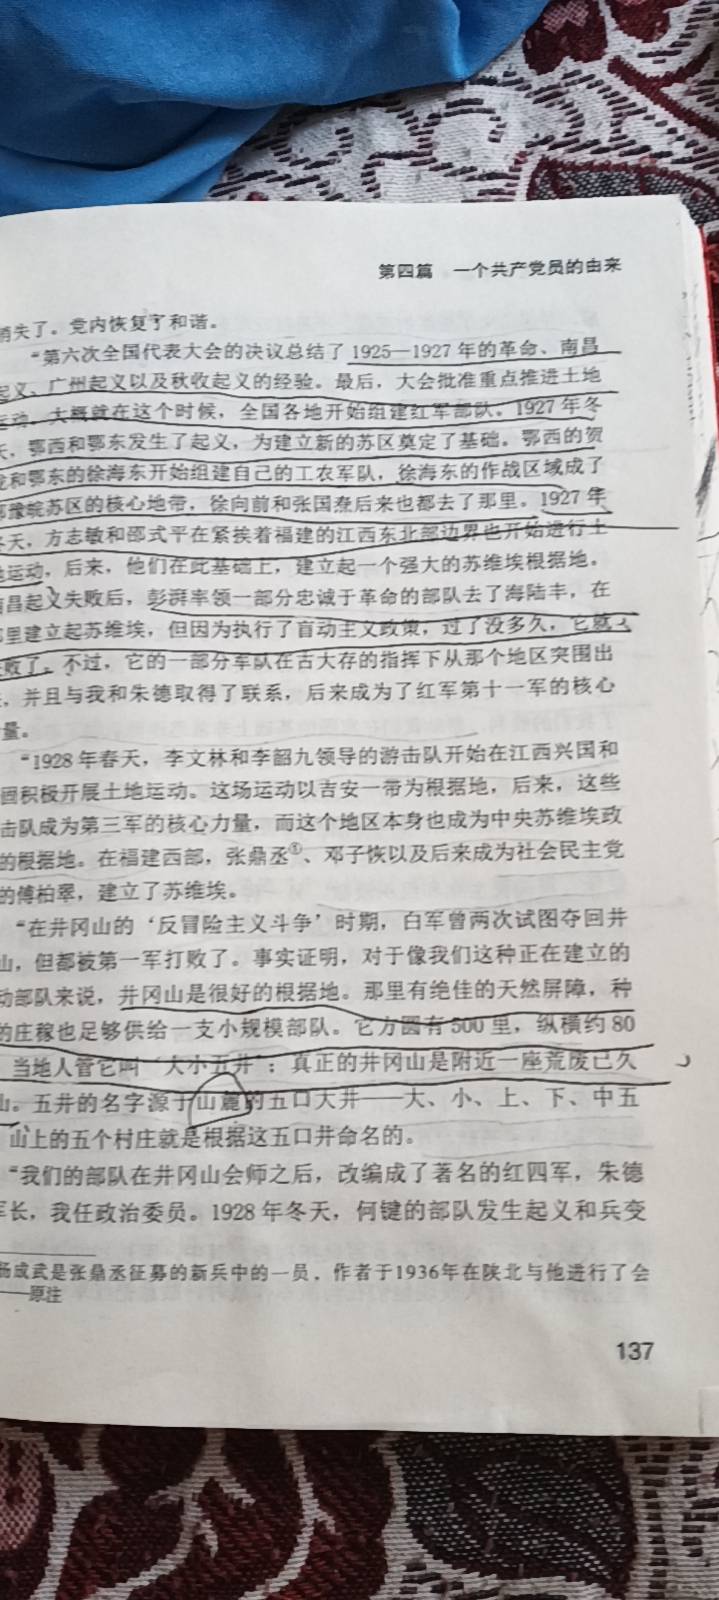 第四篇　一个共产党员的由来
消失了。党内恢复了和谐。
“第六次全国代表大会的决议总结了 1925—1927 年的革命、南昌
起义、广州起义以及秋收起义的经验。最后，大会批准重点推进土地
运动。大概就在这个时候，全国各地开始组建红军部队。1927 年冬
天，鄂西和鄂东发生了起义，为建立新的苏区奠定了基础。鄂西的贺
龙和鄂东的徐海东开始组建自己的工农军队，徐海东的作战区域成了
鄂豫皖苏区的核心地带，徐向前和张国焘后来也都去了那里。1927 年
冬天，方志敏和邵式平在紧挨着福建的江西东北部边界也开始进行土
地运动，后来，他们在此基础上，建立起一个强大的苏维埃根据地。
南昌起义失败后，彭湃率领一部分忠诚于革命的部队去了海陆丰，在
那里建立起苏维埃，但因为执行了盲动主义政策，过了没多久，它就
失败了。不过，它的一部分军队在古大存的指挥下从那个地区突围出
，并且与我和朱德取得了联系，后来成为了红军第十一军的核心
量。
“1928 年春天，李文林和李韶九领导的游击队开始在江西兴国和
固积极开展土地运动。这场运动以吉安一带为根据地，后来，这些
击队成为第三军的核心力量，而这个地区本身也成为中央苏维埃政
的根据地。在福建西部，张鼎丞①、邓子恢以及后来成为社会民主党
的傅柏翠，建立了苏维埃。
“在井冈山的‘反冒险主义斗争’时期，白军曾两次试图夺回井
山，但都被第一军打败了。事实证明，对于像我们这种正在建立的
动部队来说，井冈山是很好的根据地。那里有绝佳的天然屏障，种
的庄稼也足够供给一支小规模部队。它方圆有 500 里，纵横约 80
当地人管它叫‘大小五井’；真正的井冈山是附近一座荒废已久
山。五井的名字源于山麓的五口大井——大、小、上、下、中五
山上的五个村庄就是根据这五口井命名的。
“我们的部队在井冈山会师之后，改编成了著名的红四军，朱德
军长，我任政治委员。1928 年冬天，何键的部队发生起义和兵变
杨成武是张鼎丞征募的新兵中的一员，作者于1936年在陕北与他进行了会
——原注
137